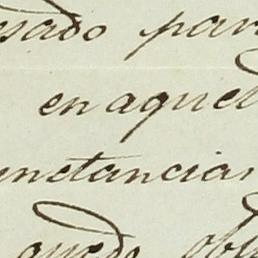 sado para
en aquel
unstancias
quedo obl